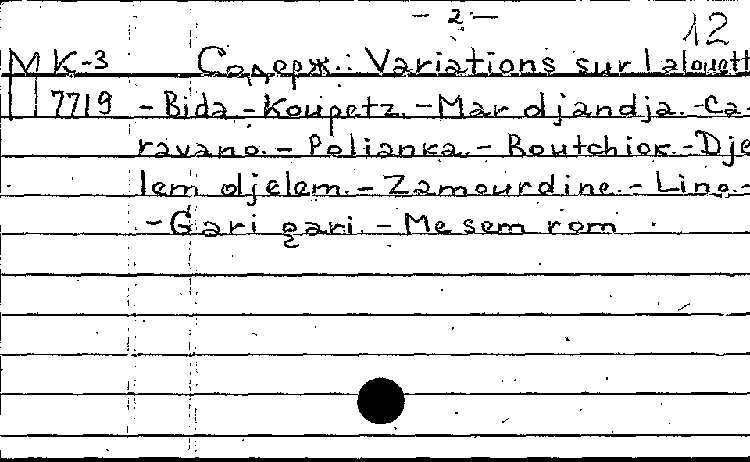 - 2 -
12
М К-3 Содерж.: Variations sur lalouett
7719 - Bida - Koupetz. - Mar djandja. - Ca-
ravano. - Polianka. - Routchiok. - Dje
lem djelem. - Zamourdine. - Ling. -
- Gari gari. - Me sem rom